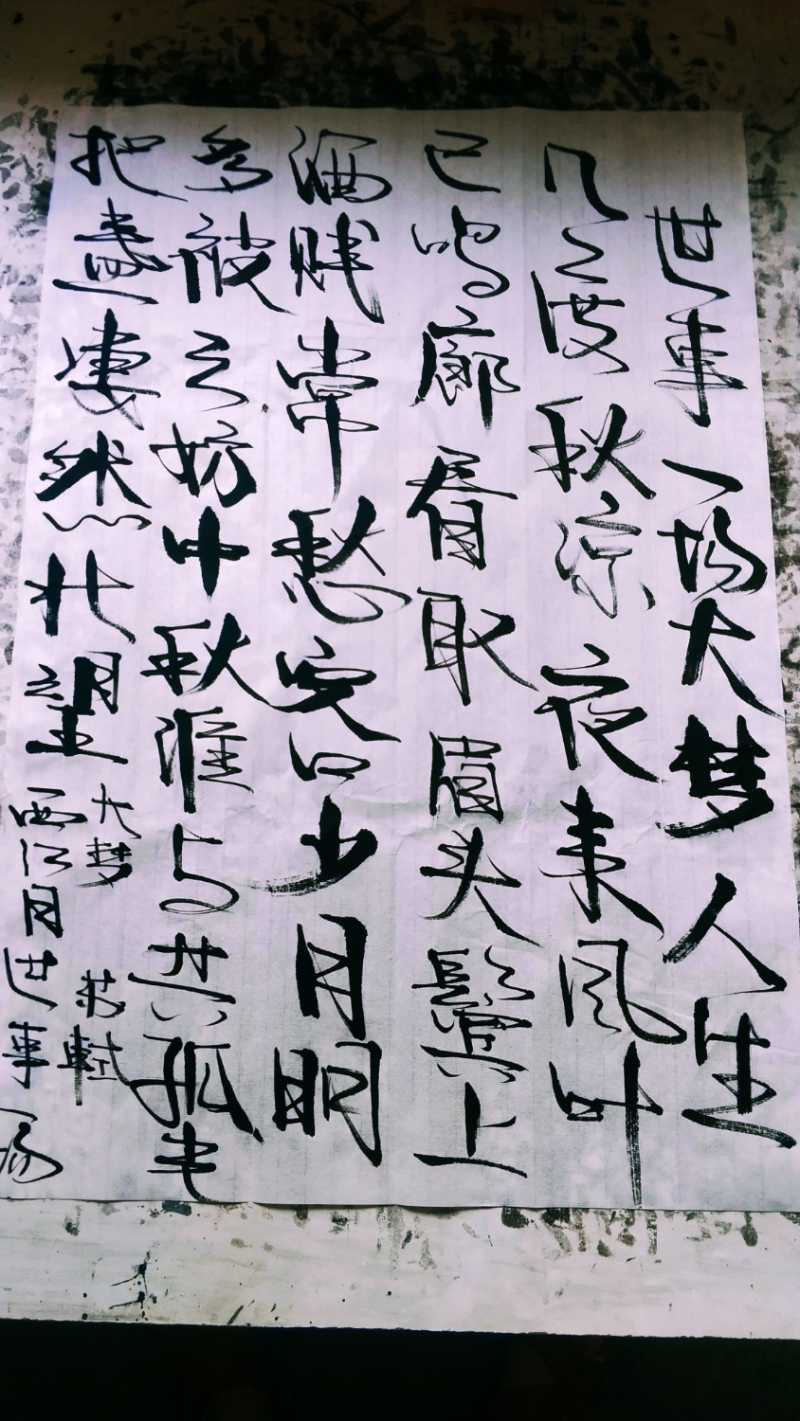 世事一场大梦人生
几度秋凉夜来风叶
已鸣廊看取眉头鬓上
酒贱常愁客少月明
多被云妨中秋谁与共孤光
把盏凄然北望
西江月世事一场
大梦 苏轼